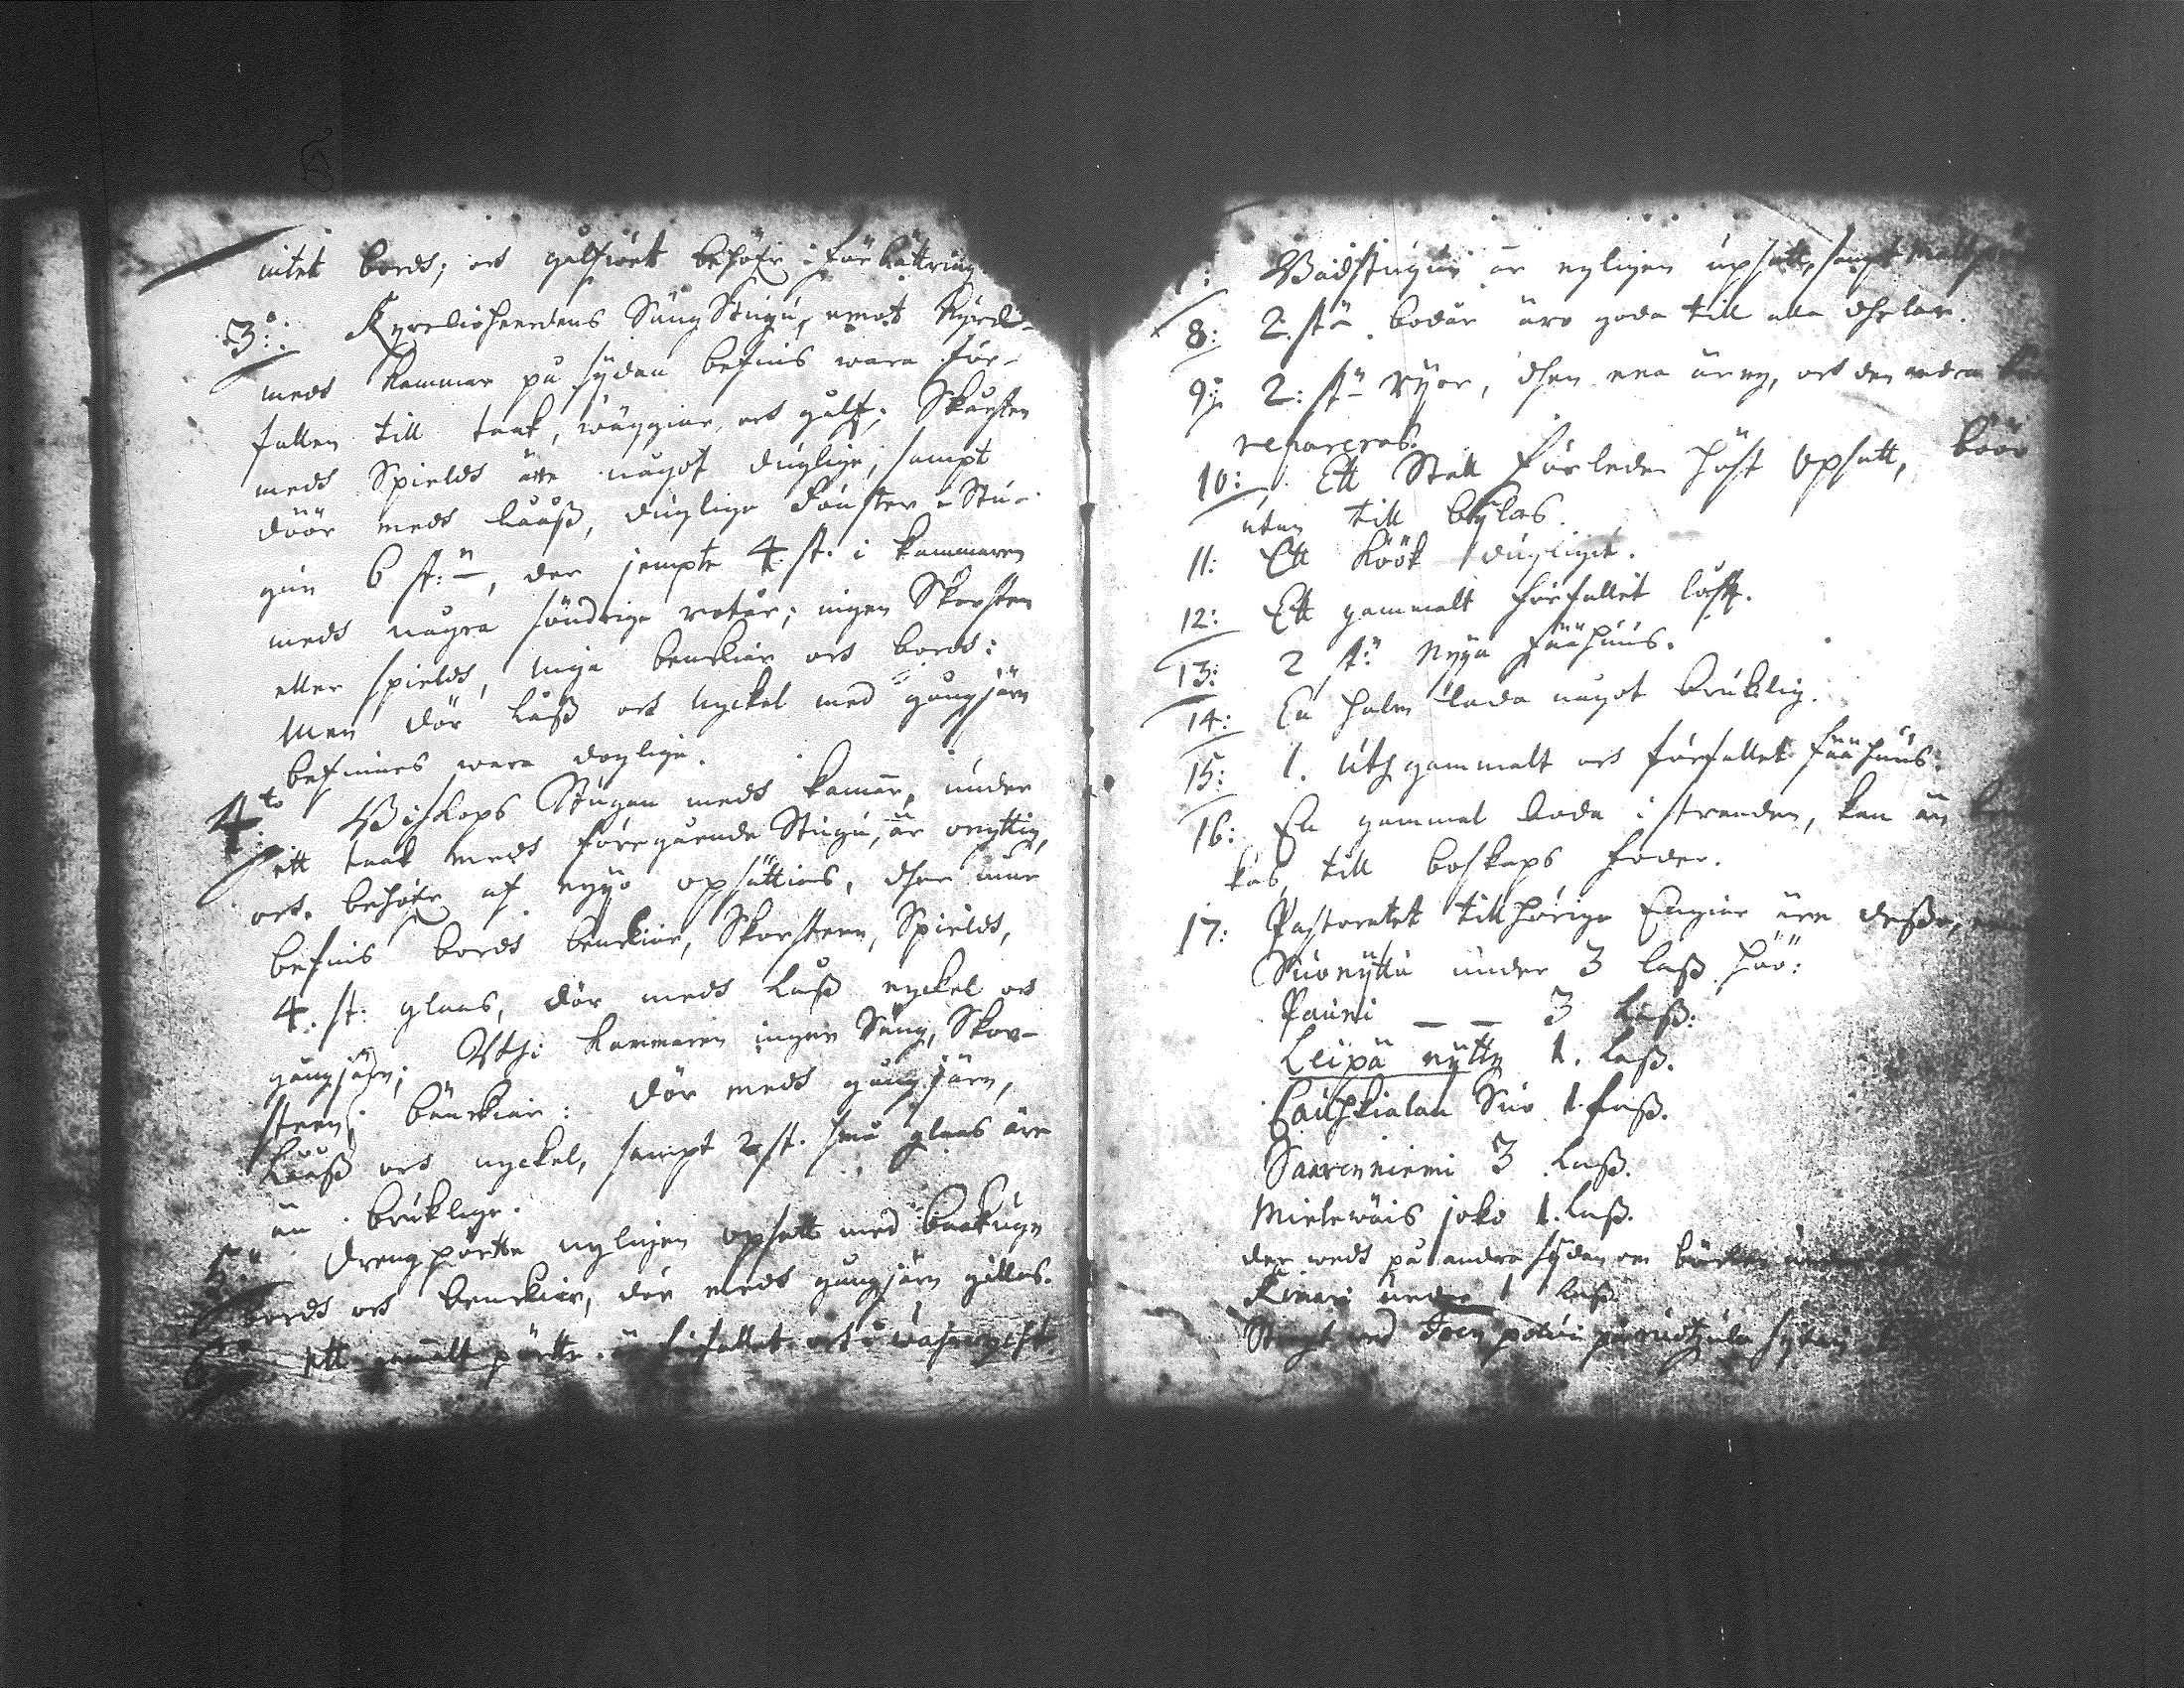 intet bords; och gålfwet behöfr i förbättring
3o: Kyrckioherdens Säng Stugu, emot
medh Kammar på sydan befins wara för-
fallen till taak, wäggiar, och gålf; Skårsten
medh Spield ähre något duglige, sampt
döör medh Låås, duglige fönster i Stu-
gun 6 st:n, der jempte 4 st. i kammaren
medh några söndrige rutår; ingen Skorsten
eller spield, inga benckiar och bord:
Men dör Låß och nyckel med gångjärn
befinnes wara doglige.
4to Biskops Stugan medh kamar, under
ett taak medh föregående Stugu, är onyttig,
och behöfr af nyyo opsättias, dher uur
befins bord benckiar, Skorsteen, Spield,
4. st: glaas, dör medh Låß nyckel och
gångjärn; Uthi kammaren ingen Säng, Skor-
steen, bänckiar: dör medh gångjärn,
Låås och nyckel, sampt 2 st. små glaas äre
än bruklige.
5: Drengpörtte nyligen opsatt med baakugn
bord och benckiar, dör medh gångjärn gillas.
6: ett gamalt pörtte är förfallet och
: Badstugun är nyligen upsatt, sampt
8: 2 st:n bodar äro goda till alla dhelar.
9: 2: st:n Ryor, dhen ena är ny, och den andra
repareras.
10: Ett Stall förleden höst Opsatt, böör
utan till bylas.
11: Ett Köök dugliget.
12: Ett gammalt förfallit lofft.
13: 2 st:n Nyya fäähuus.
14: En halm lada något bruklig.
15: 1. uthgammalt och förfallet fäähuus.
16: En gammal lada i stranden, kan än
kas till boskaps foder.
17: Pastoratet tillhörige Engiar äre desse,
Suonytty under 3 laß höö:
Pauni _ _ 3 Laß:
Leipä nytty 1. Laß.
Lauhkialan Suo 1. Laß.
Saarenniemi 3 Laß.
Mielewäis joko 1. Laß.
der medh på andra sydan om
Kinari under 1 Laß